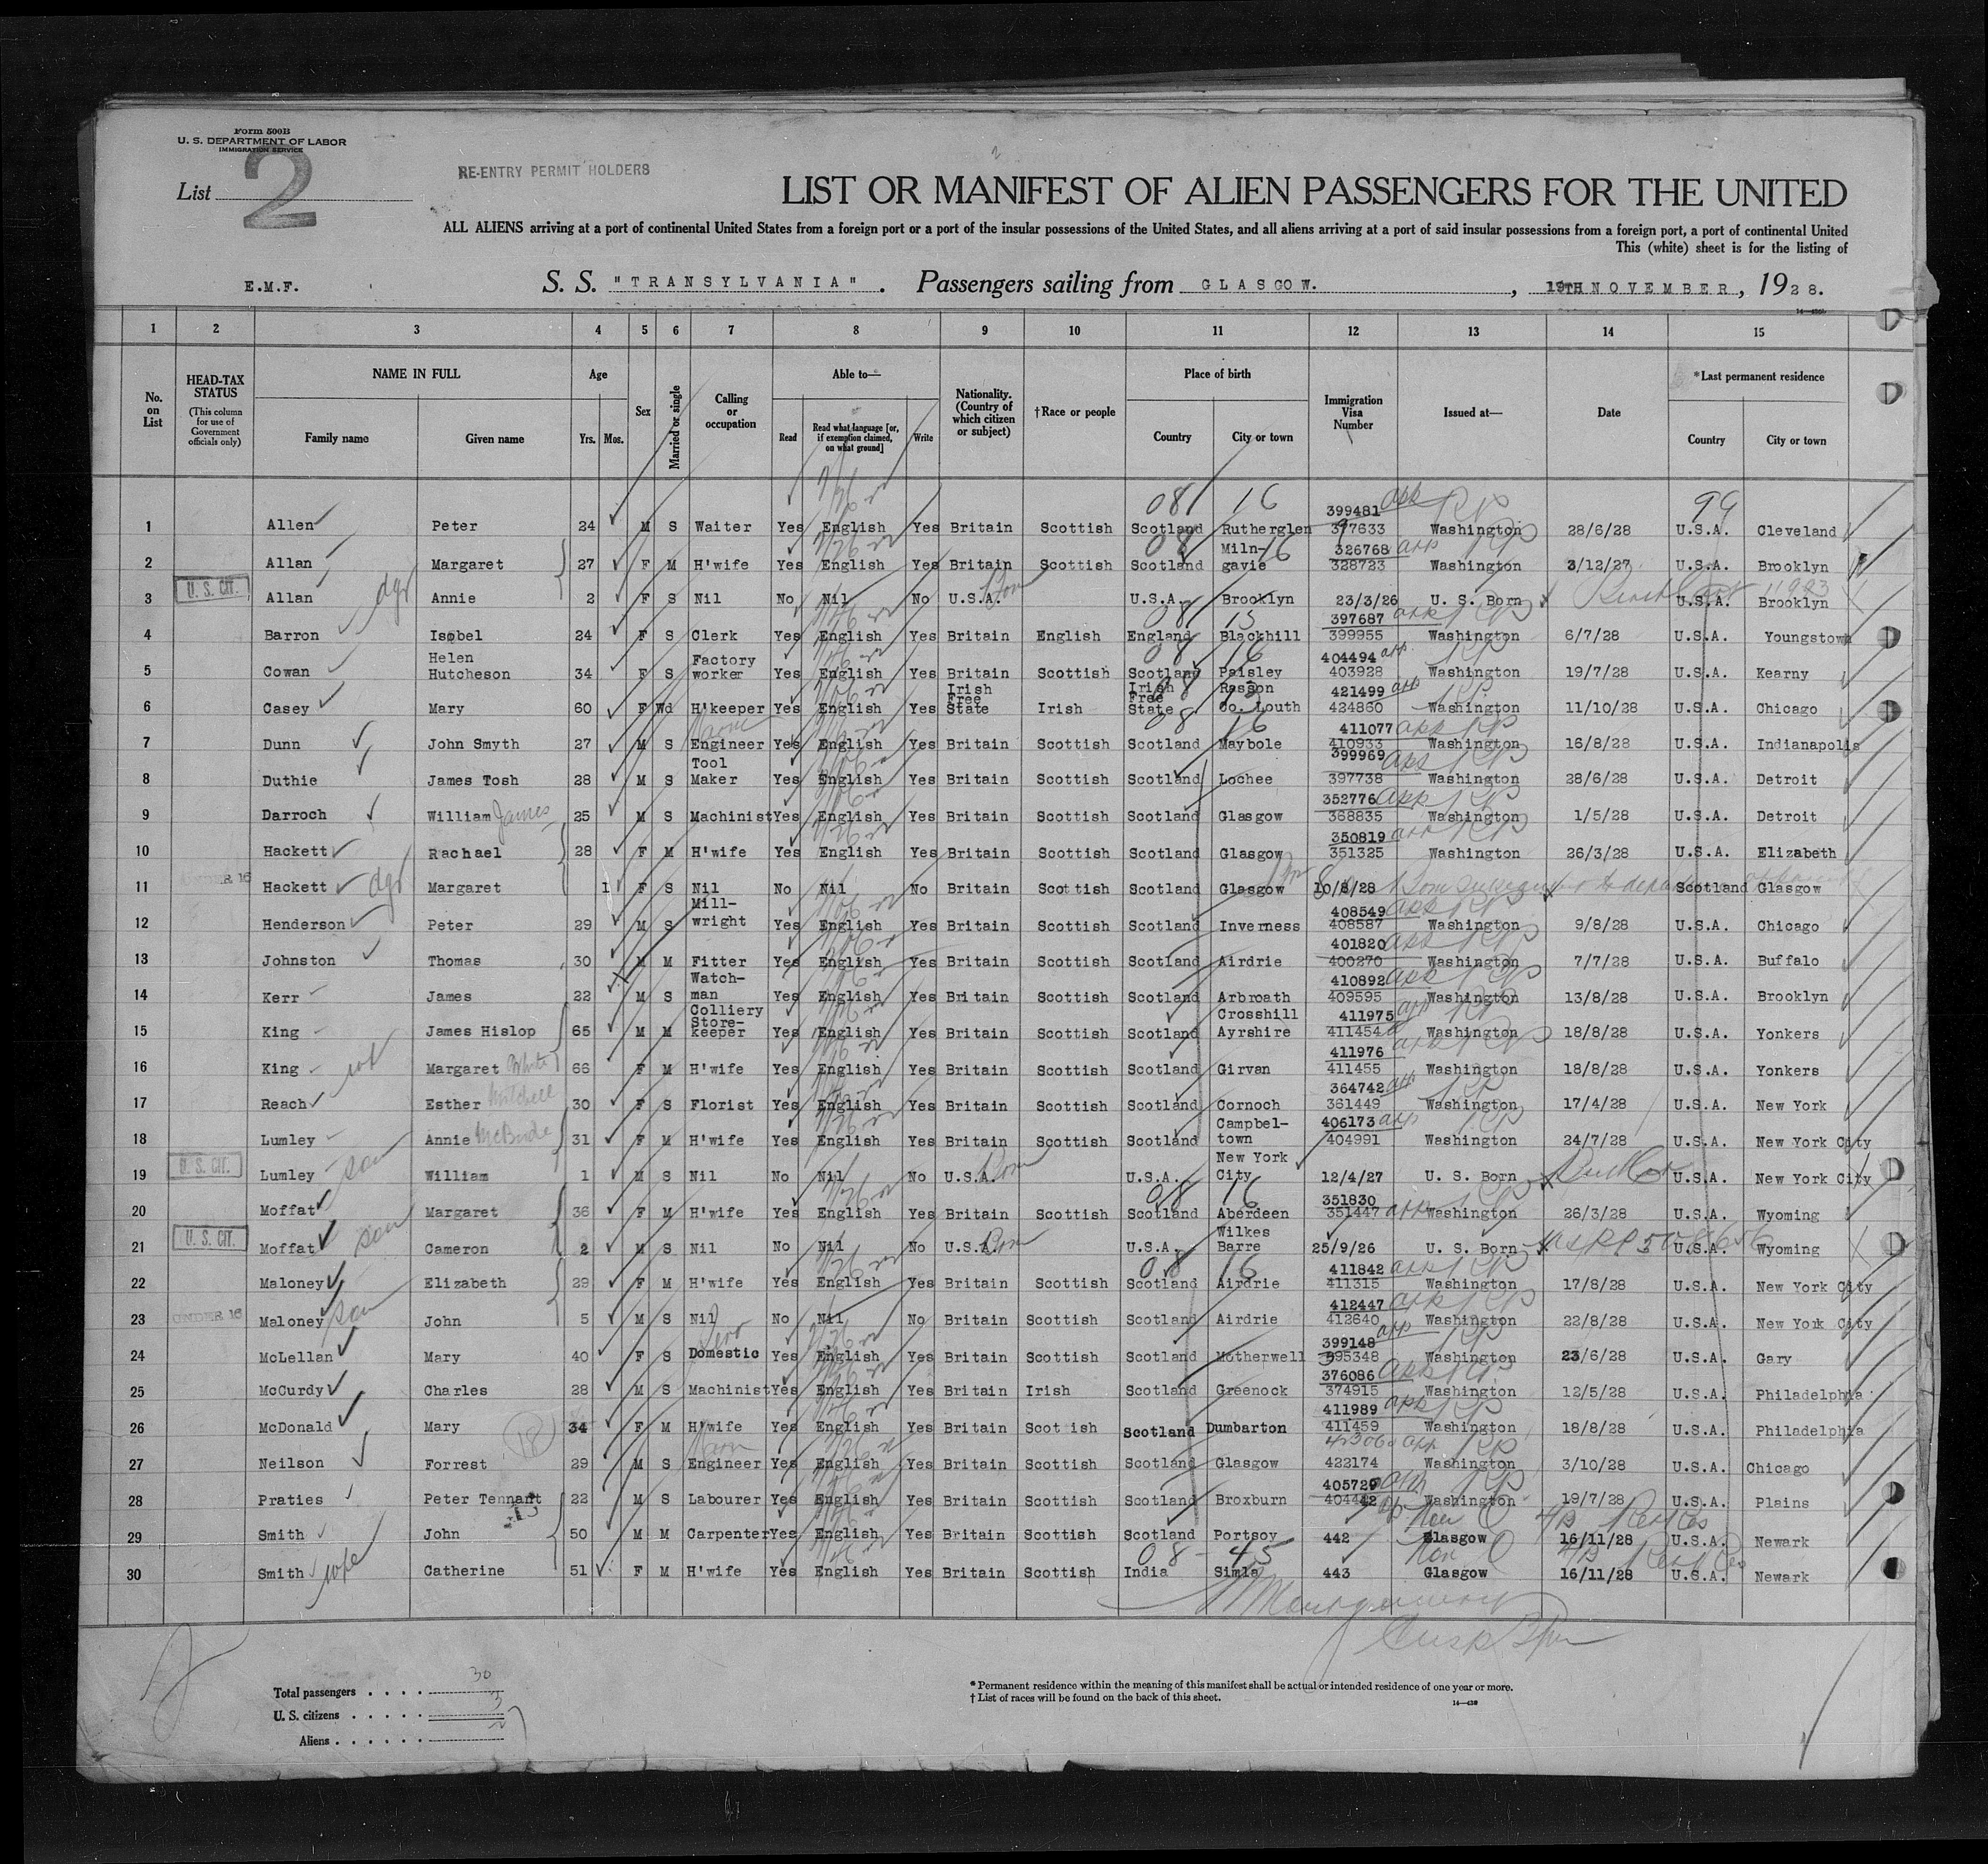 Form 500B
U. S. DEPARTMENT OF LABOR
IMMIGRATION SERVICE
List 2
RE-ENTRY PERMIT HOLDERS
LIST OR MANIFEST OF ALIEN PASSENGERS FOR THE UNITED
ALL ALIENS arriving at a port of continental United States from a foreign port or a port of the insular possessions of the United States, and all aliens arriving at a port of said insular possessions from a foreign port, a port of continental United
This (white) sheet is for the listing of
E.M.F. S. S. "TRANSYLVANIA". Passengers sailing from GLASGOW. , 19TH NOVEMBER, 1928.
1 2 3 4 5 6 7 8 9 10 11 12 13 14 15
No. on List HEAD-TAX STATUS (This column for use of Government officials only) NAME IN FULL Family name Given name Age Yrs. Mos. Sex Married or single Calling or occupation Able to— Read Read what language [or, if exemption claimed, on what ground] Write Nationality. (Country of which citizen or subject) †Race or people Place of birth Country City or town Immigration Visa Number Issued at— Date *Last permanent residence Country City or town
08 16 99
1 Allen Peter 24 M S Waiter Yes English Yes Britain Scottish Scotland Rutherglen 399481 377633 Washington 28/6/28 U.S.A. Cleveland
2 Allan Margaret 27 F M H'wife Yes English Yes Britain Scottish Scotland Miln-gavie 326768 328723 Washington 3/12/27 U.S.A. Brooklyn
3 U.S. CIT. Allan dgr Annie 2 F S Nil No Nil No U.S.A. U.S.A. Brooklyn 23/3/26 U. S. Born U.S.A. Brooklyn
4 Barron Isobel 24 F S Clerk Yes English Yes Britain English England Blackhill 397687 399955 Washington 6/7/28 U.S.A. Youngstown
5 Cowan Helen Hutcheson 34 F S Factory worker Yes English Yes Britain Scottish Scotland Paisley 404494 403928 Washington 19/7/28 U.S.A. Kearny
6 Casey Mary 60 F Wd H'keeper Yes English Yes Irish Free State Irish Irish Free State Rasson Co. Louth 421499 424860 Washington 11/10/28 U.S.A. Chicago
7 Dunn John Smyth 27 M S Engineer Yes English Yes Britain Scottish Scotland Maybole 411077 410933 Washington 16/8/28 U.S.A. Indianapolis
8 Duthie James Tosh 28 M S Tool Maker Yes English Yes Britain Scottish Scotland Lochee 399969 397738 Washington 28/6/28 U.S.A. Detroit
9 Darroch William James 25 M S Machinist Yes English Yes Britain Scottish Scotland Glasgow 352776 368835 Washington 1/5/28 U.S.A. Detroit
10 Hackett Rachael 28 F M H'wife Yes English Yes Britain Scottish Scotland Glasgow 350819 351325 Washington 26/3/28 U.S.A. Elizabeth
11 UNDER 16 Hackett dgr Margaret 1 F S Nil No Nil No Britain Scottish Scotland Glasgow 10/8/28 Scotland Glasgow
12 Henderson Peter 29 M S Mill-wright Yes English Yes Britain Scottish Scotland Inverness 408549 408587 Washington 9/8/28 U.S.A. Chicago
13 Johnston Thomas 30 M M Fitter Yes English Yes Britain Scottish Scotland Airdrie 401820 400270 Washington 7/7/28 U.S.A. Buffalo
14 Kerr James 22 M S Watch-man Yes English Yes Britain Scottish Scotland Arbroath 410892 409595 Washington 13/8/28 U.S.A. Brooklyn
15 King James Hislop 65 M M Colliery Store-keeper Yes English Yes Britain Scottish Scotland Crosshill Ayrshire 411975 411454 Washington 18/8/28 U.S.A. Yonkers
16 King Margaret White 66 F M H'wife Yes English Yes Britain Scottish Scotland Girvan 411976 411455 Washington 18/8/28 U.S.A. Yonkers
17 Reach Esther Mitchell 30 F S Florist Yes English Yes Britain Scottish Scotland Cornoch 364742 361449 Washington 17/4/28 U.S.A. New York
18 Lumley Annie McBride 31 F M H'wife Yes English Yes Britain Scottish Scotland Campbel-town 406173 404991 Washington 24/7/28 U.S.A. New York City
19 U.S. CIT. Lumley son William 1 M S Nil No Nil No U.S.A. U.S.A. New York City 12/4/27 U. S. Born U.S.A. New York City
20 Moffat Margaret 36 F M H'wife Yes English Yes Britain Scottish Scotland Aberdeen 351830 351447 Washington 26/3/28 U.S.A. Wyoming
21 U.S. CIT. Moffat son Cameron 2 M S Nil No Nil No U.S.A. U.S.A. Wilkes Barre 25/9/26 U. S. Born U.S.A. Wyoming
22 Maloney Elizabeth 29 F M H'wife Yes English Yes Britain Scottish Scotland Airdrie 411842 411315 Washington 17/8/28 U.S.A. New York City
23 UNDER 16 Maloney son John 5 M S Nil No Nil No Britain Scottish Scotland Airdrie 412447 412640 Washington 22/8/28 U.S.A. New York City
24 McLellan Mary 40 F S Domestic Yes English Yes Britain Scottish Scotland Motherwell 399148 395348 Washington 23/6/28 U.S.A. Gary
25 McCurdy Charles 28 M S Machinist Yes English Yes Britain Irish Scotland Greenock 376086 374915 Washington 12/5/28 U.S.A. Philadelphia
26 McDonald Mary 34 F M H'wife Yes English Yes Britain Scottish Scotland Dumbarton 411989 411459 Washington 18/8/28 U.S.A. Philadelphia
27 Neilson Forrest 29 M S Engineer Yes English Yes Britain Scottish Scotland Glasgow 422174 Washington 3/10/28 U.S.A. Chicago
28 Praties Peter Tennant 22 M S Labourer Yes English Yes Britain Scottish Scotland Broxburn 405729 404442 Washington 19/7/28 U.S.A. Plains
29 Smith John 50 M M Carpenter Yes English Yes Britain Scottish Scotland Portsoy 442 Glasgow 16/11/28 U.S.A. Newark
30 Smith wife Catherine 51 F M H'wife Yes English Yes Britain Scottish India Simla 443 Glasgow 16/11/28 U.S.A. Newark
Total passengers . . . . 30
U. S. citizens . . . . . 3
Aliens . . . . . .
* Permanent residence within the meaning of this manifest shall be actual or intended residence of one year or more.
† List of races will be found on the back of this sheet.